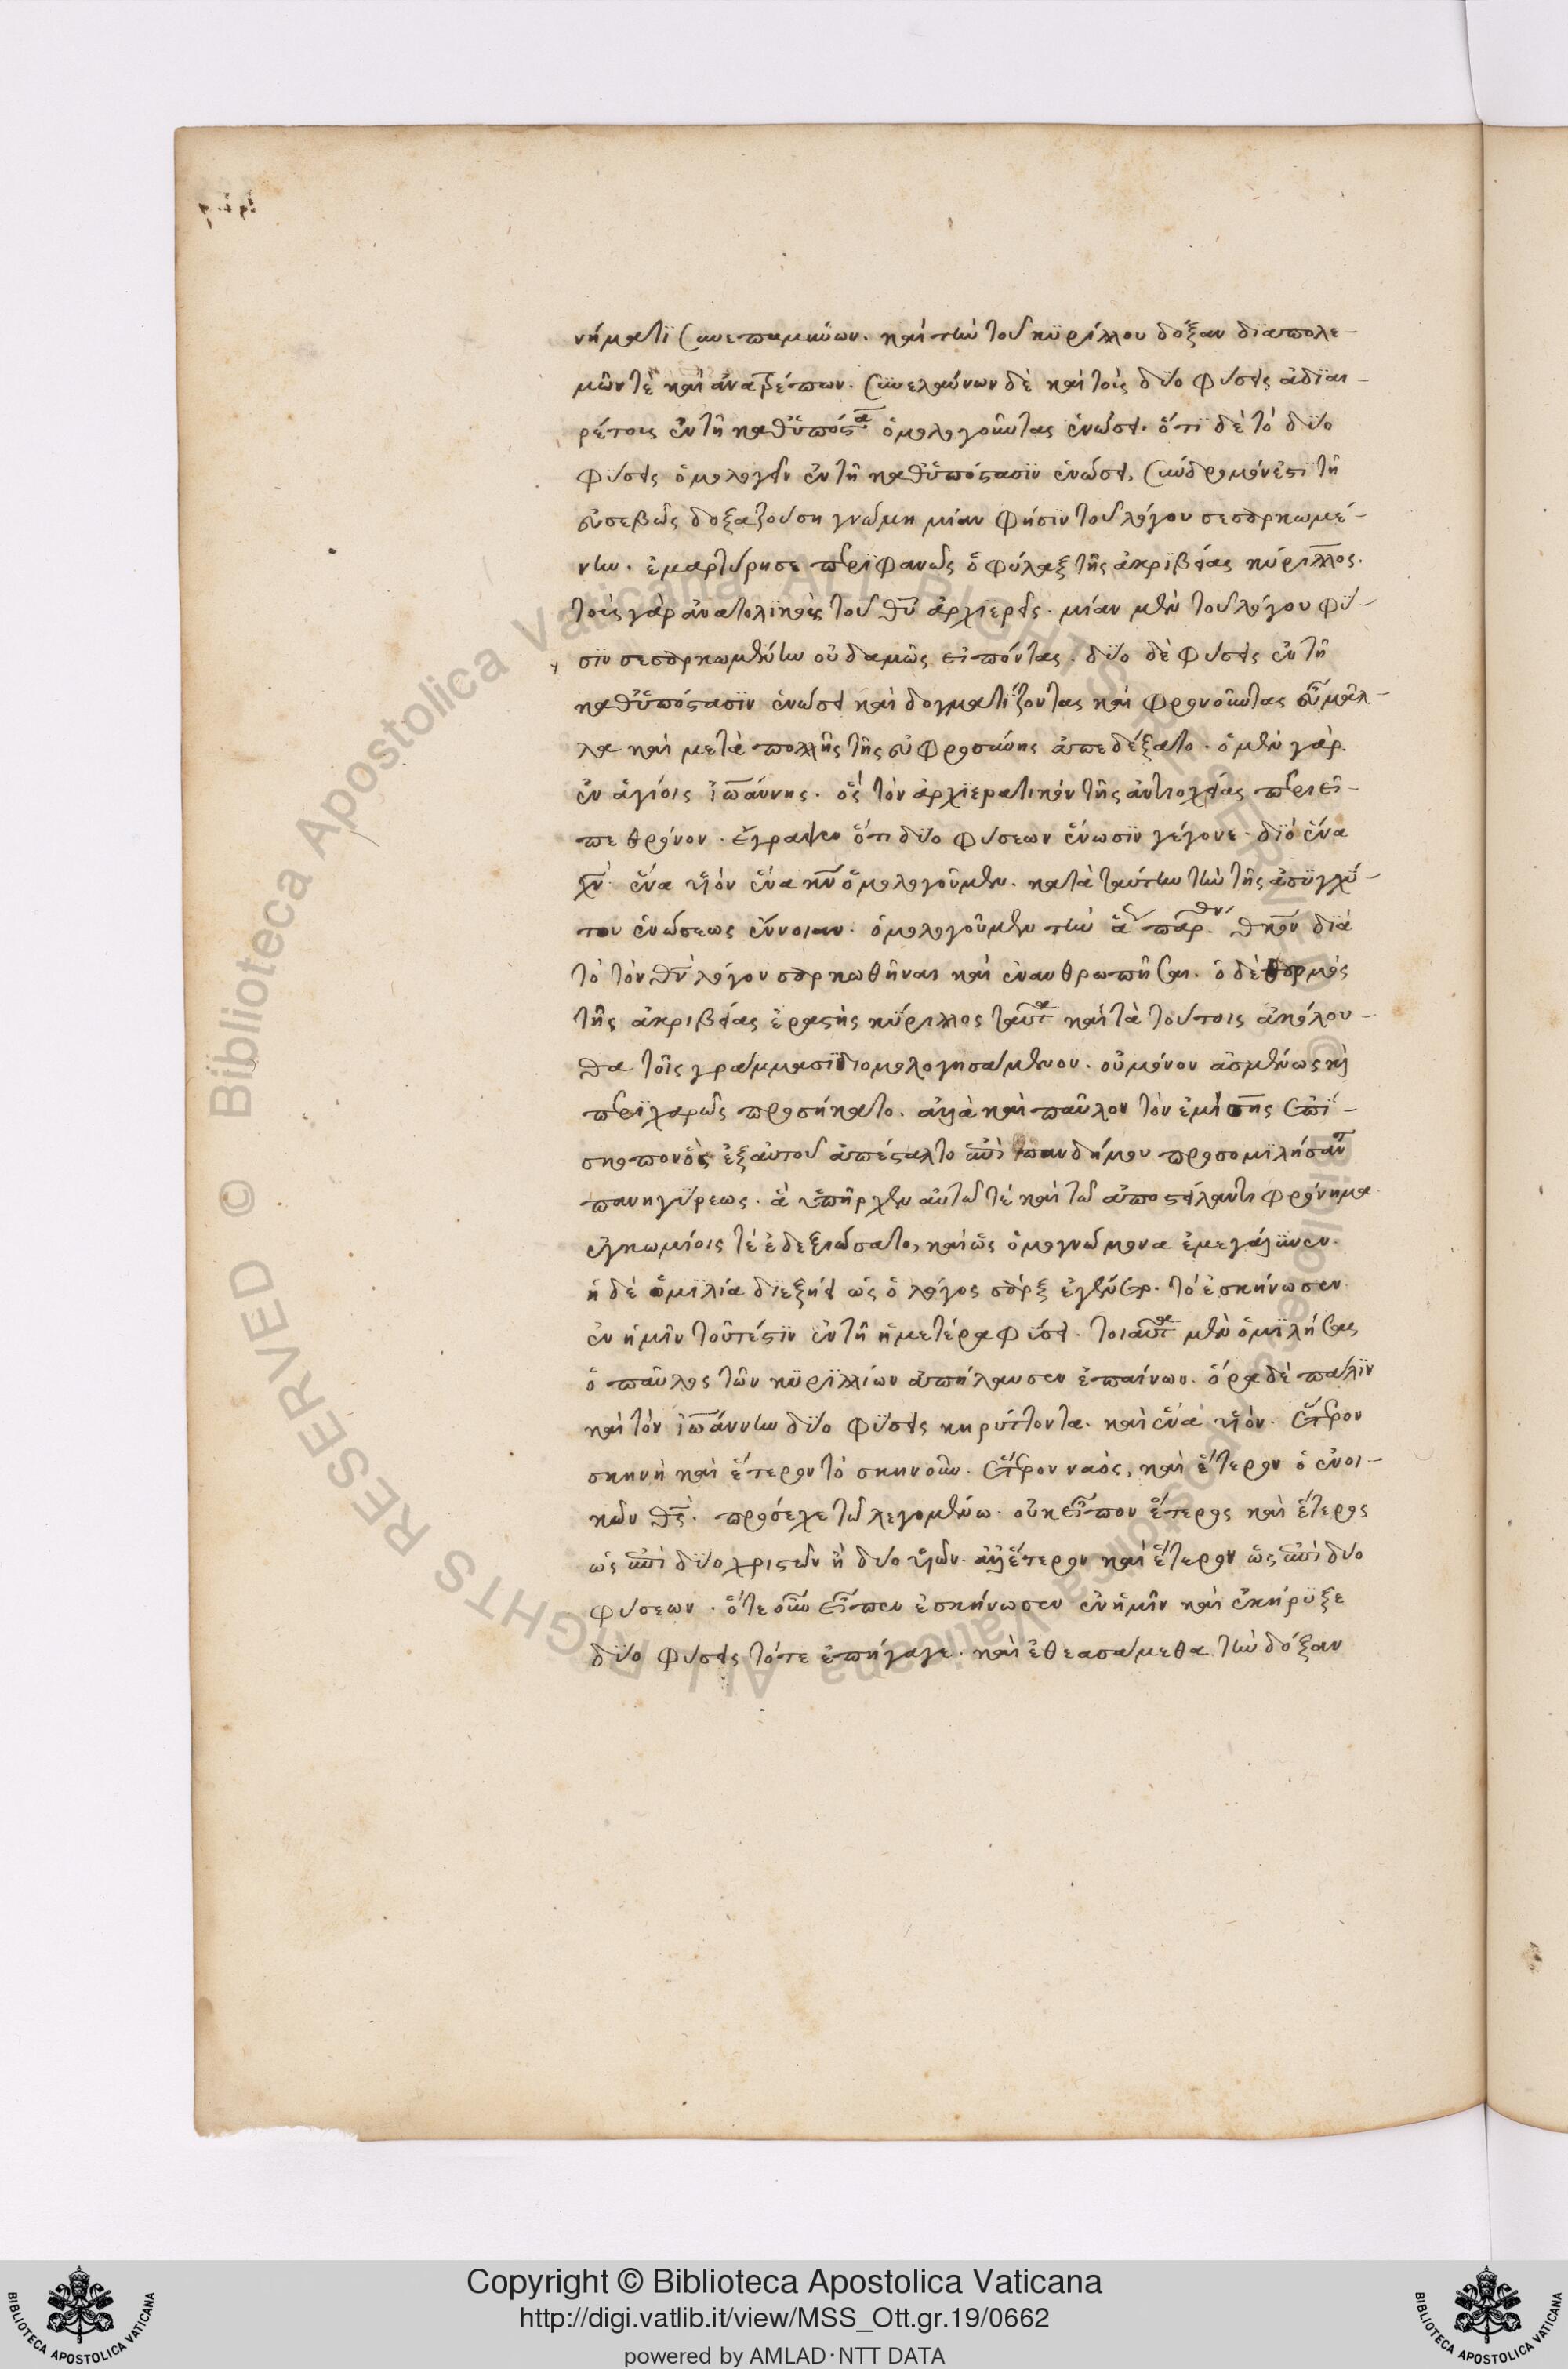 νήματι συνεπαμύνων. καὶ τὴν τοῦ κυρίλλου δόξαν διαπολε-
μῶν τὲ καὶ ἀνατρέπων. συνελαύνων δὲ καὶ τοὺς δύο φύσεις ἀδιαι-
ρέτους ἐν τῆ καθ' ὑπόστα ὁμολογοῦντας ἑνώσει. ὅτι δὲ τὸ δύο
φύσεις ὁμολογεῖν ἐν τῆ καθ' ὑπόστασιν ἑνώσει, σύνδρομόν ἐστι τῆ
εὐσεβῶς δοξαζούση γνώμη μίαν φύσιν τοῦ λόγου σεσαρκωμέ-
νην. ἐμαρτύρησε περιφανῶς ὁ φύλαξ τῆς ἀκριβείας κύριλλος.
τοὺς γὰρ ἀνατολικοὺς τοῦ θυ ἀρχιερεῖς. μίαν μὲν τοῦ λόγου φύ-
σιν σεσαρκωμένην οὐδαμῶς εἰπόντας. δύο δὲ φύσεις ἐν τῆ
καθ' ὑπόστασιν ἑνώσει καὶ δογματίζοντας καὶ φρονοῦντας εὖ μάλ-
λα καὶ μετὰ πολλῆς τῆς εὐφροσύνης ἀπεδέξατο. ὁ μὲν γὰρ
ἐν ἁγίοις ἰωάννης. ὃς τὸν ἀρχιερατικὸν τῆς ἀντιοχείας περιεῖ-
πε θρόνον. ἔγραψεν ὅτι δύο φύσεων ἕνωσιν γέγονε. διὸ ἕνα
χν ἕνα υἱὸν ἕνα κν ὁμολογοῦμεν. κατὰ ταύτην τὴν τῆς ἀσυγχύ-
του ἑνώσεως ἔννοιαν. ὁμολογοῦμεν τὴν ἁ παρθν θκον διὰ
τὸ τὸν θν λόγον σαρκωθῆναι καὶ ἐνανθρωπῆσαι. ὁ δὲ θερμὸς
τῆς ἀκριβείας ἐραστὴς κύριλλος ταῦτα καὶ τὰ τούτοις ἀκόλου-
θα τοῖς γράμμασι διομολογησάμενον. οὐ μόνον ἀσμένως κὶ
περιχαρῶς προσήκατο. ἀλλὰ καὶ παῦλον τὸν ἐμίσης ἐπί-
σκοπον ὃς ἐξ αὐτοῦ ἀπέσταλτο ἐπὶ πανδήμου προσομιλήσαντ
πανηγύρεως. ἃ ὑπῆρχεν αὐτῶ τὲ καὶ τῶ ἀποστείλαντι φρόνημα
ἐγκωμίοις τὲ ἐδεξιώσατο, καὶ ὡς ὁμογνώμονα ἐμεγάλυνεν.
ἡ δὲ ὁμιλία διεξήει ὡς ὁ λόγος σὰρξ ἐγένετο. τὸ ἐσκήνωσεν
ἐν ἡμῖν τουτέστιν ἐν τῆ ἡμετέρα φύσει. τοιαῦτα μὲν ὁμιλήσας
ὁ παῦλος τῶν κυριλλίων ἀπήλαυσεν ἐπαίνων. ὅρα δὲ πάλιν
καὶ τὸν ἰωάννην δύο φύσεις κηρύττοντα. καὶ ἕνα υἱόν. ἕτερον
σκηνὴ καὶ ἕτερον τὸ σκηνοῦν. ἕτερον ναὸς, καὶ ἕτερον ὁ ἐνοι-
κῶν θς. πρόσεχε τῶ λεγομένω. οὐκ εἶπον ἕτερος καὶ ἕτερος
ὡς ἐπὶ δύο χριστῶν ἢ δυο υἱῶν. ἀλλ' ἕτερον καὶ ἕτερον ὡς ἐπὶ δυο
φύσεων. ὅτε οὖν εἶπεν ἐσκήνωσεν ἐν ἡμῖν καὶ ἐκήρυξε
δύο φύσεις τότε ἐπήγαγε. καὶ ἐθεασάμεθα τὴν δόξαν
Copyright © Biblioteca Apostolica Vaticana
http://digi.vatlib.it/view/MSS_Ott.gr.19/0662
powered by AMLAD·NTT DATA